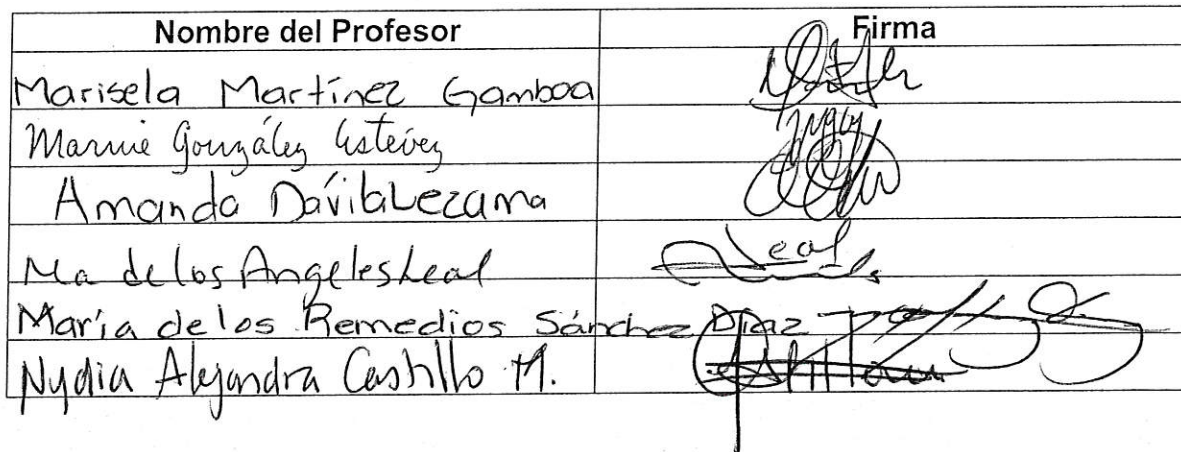 Nombre del Profesor Firma
Marisela Martínez Gamboa
Marnie González Estévez
Amanda Dávila Lezama
Ma de los Angeles Leal Leal
María de los Remedios Sánchez Díaz
Nydia Alejandra Castillo M.